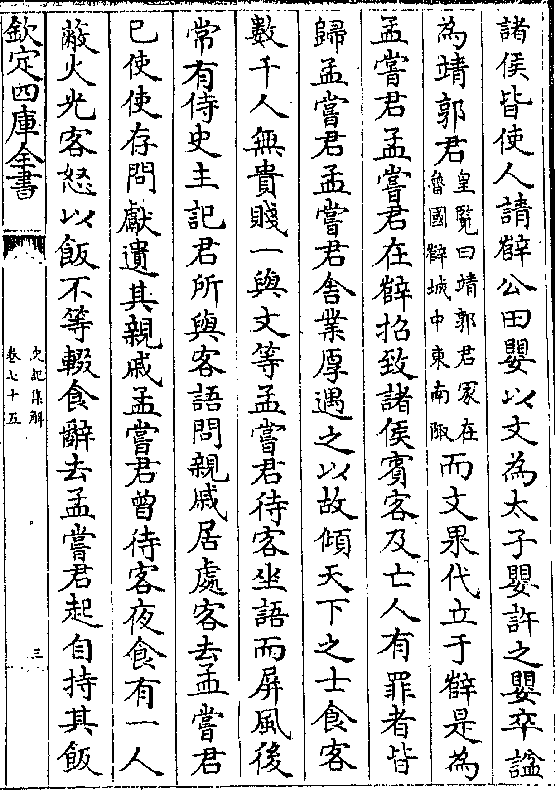 諸侯皆使人請薛公田嬰以文為太子嬰許之嬰卒諡
為靖郭君皇覽曰靖郭君冢在魯國薛城中東南陬而文果代立于薛是為
孟嘗君孟嘗君在薛招致諸侯賓客及亡人有罪者皆
歸孟嘗君孟嘗君舍業厚遇之以故傾天下之士食客
數千人無貴賤一與文等孟嘗君待客坐語而屏風後
常有侍史主記君所與客語問親戚居處客去孟嘗君
已使使存問獻遺其親戚孟嘗君曾待客夜食有一人
蔽火光客怒以飯不等輟食辭去孟嘗君起自持其飯
欽定四庫全書
史記集解
卷七十五
三